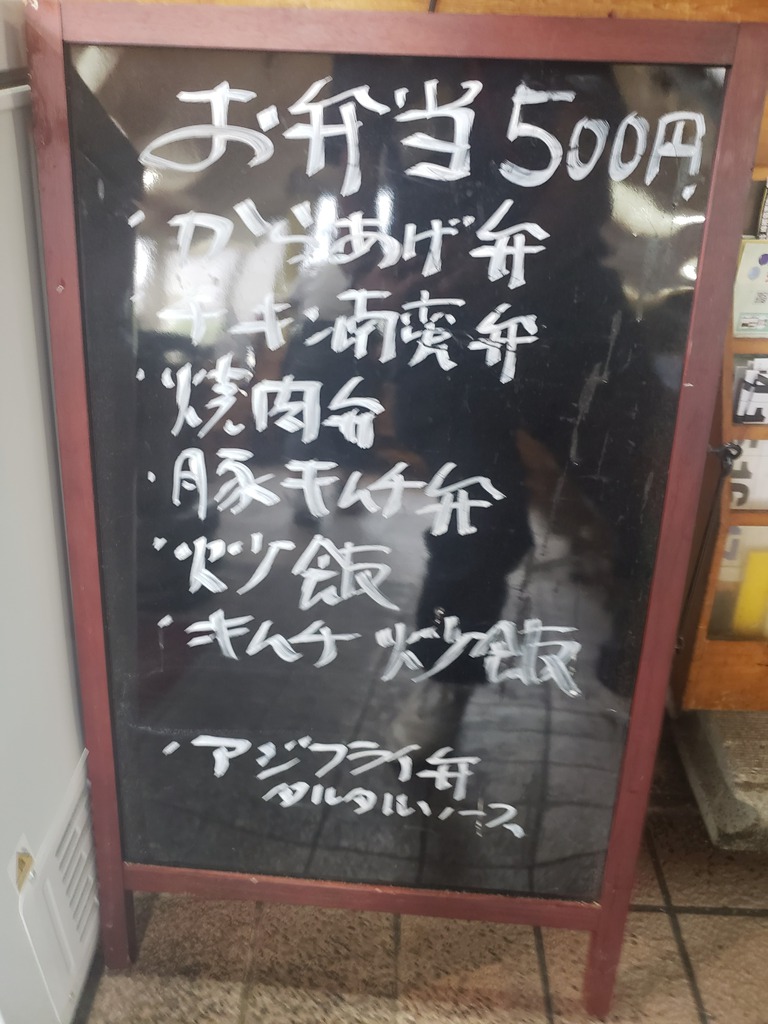 お弁当500円
・からあげ弁
・チキン南蛮弁
・焼肉弁
・豚キムチ弁
・炒飯
・キムチ炒飯
・アジフライ弁
タルタルソース
16